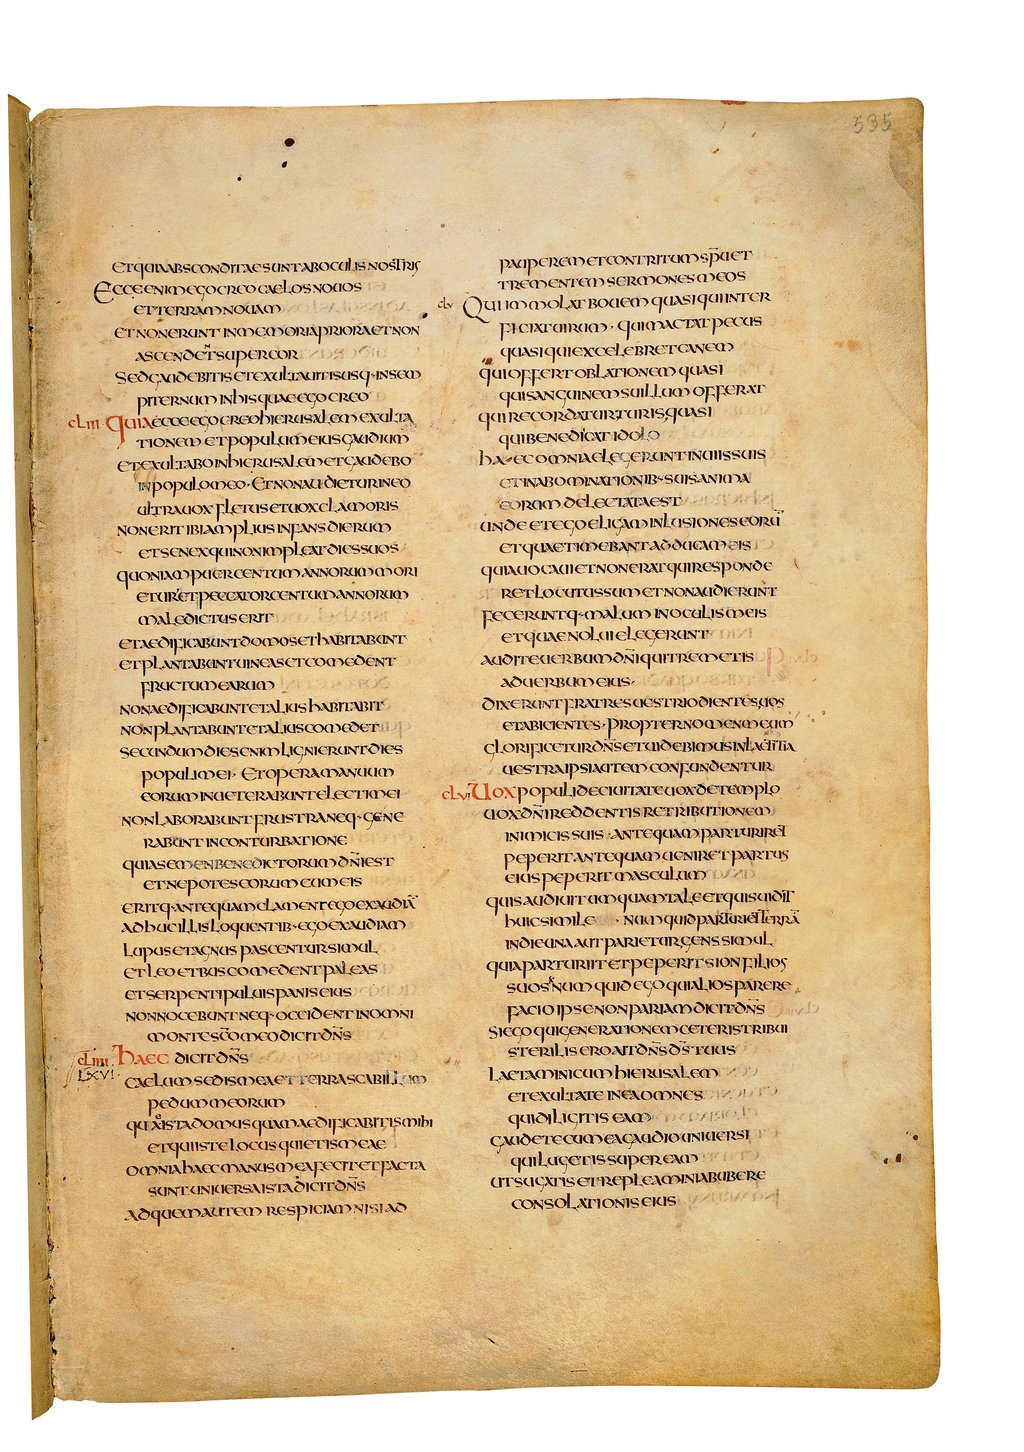 535
ETQUIAABSCONDITAESUNTABOCULIS NOSTRIS
ECCE ENIM EGO CREO CAELOS NOUOS
ET TERRAM NOUAM
ET NON ERUNT IN MEMORIA PRIORA ET NON
ASCENDENT SUPER COR
SED GAUDEBITIS ET EXULTAUITIS USQ· IN SEM
PITERNUM IN HIS QUAE EGO CREO
CLIII QUIA ECCE EGO CREO HIERUSALEM EXULTA
TIONEM ET POPULUM EIUS GAUDIUM
ET EXULTABO IN HIERUSALEM ET GAUDEBO
IN POPULO MEO· ET NON AUDIETUR IN EO
ULTRA UOX FLETUS ET UOX CLAMORIS
NON ERIT IBI AMPLIUS INFANS DIERUM
ET SENEX QUI NON IMPLEAT DIES SUOS
QUONIAM PUER CENTUM ANNORUM MORI
ETUR ET PECCATOR CENTUM ANNORUM
MALEDICTUS ERIT
ET AEDIFICABUNT DOMOS ET HABITABUNT
ET PLANTABUNT UINEAS ET COMEDENT
FRUCTUM EARUM
NON AEDIFICABUNT ET ALIUS HABITABIT
NON PLANTABUNT ET ALIUS COMEDET
SECUNDUM DIES ENIM LIGNI ERUNT DIES
POPULI MEI· ET OPERA MANUUM
EORUM INUETERABUNT ELECTI MEI
NON LABORABUNT FRUSTRA NEQ· GENE
RABUNT IN CONTURBATIONE
QUIA SEMEN BENEDICTORUM DÑI EST
ET NEPOTES EORUM CUM EIS
ERITQ· ANTEQUAM CLAMENT EGO EXAUDIĀ
ADHUC ILLIS LOQUENTIB· EGO EXAUDIAM
LUPUS ET AGNUS PASCENTUR SIMUL
ET LEO ET BUS COMEDENT PALEAS
ET SERPENTI PULUIS PANIS EIUS
NON NOCEBUNT NEQ· OCCIDENT IN OMNI
MONTE SCO MEO DICIT DÑS
CLIIII HAEC DICIT DÑS
LXVI· CAELUM SEDIS MEA ET TERRA SCABILLUM
PEDUM MEORUM
QUAE ISTA DOMUS QUAM AEDIFICABITIS MIHI
ET QUI ISTE LOCUS QUIETIS MEAE
OMNIA HAEC MANUS MEA FECIT ET FACTA
SUNT UNIUERSA ISTA DICIT DÑS
AD QUEM AUTEM RESPICIAM NISI AD
PAUPEREM ET CONTRITUM SPU ET
TREMENTEM SERMONES MEOS
CLV QUI IMMOLAT BOUEM QUASI QUI INTER
FICIAT UIRUM· QUI MACTAT PECUS
QUASI QUI EXCELEBRET CANEM
QUI OFFERT OBLATIONEM QUASI
QUI SANGUINEM SUILLUM OFFERAT
QUI RECORDATUR TURIS QUASI
QUI BENEDICAT IDOLO
HAEC OMNIA ELEGERUNT IN UIIS SUIS
ET IN ABOMINATIONIB· SUIS ANIMA
EORUM DELECTATA EST
UNDE ET EGO ELIGAM INLUSIONES EORŪ
ET QUAE TIMEBANT ADDUCAM EIS
QUIA UOCAUI ET NON ERAT QUI RESPONDE
RET LOCUTUS SUM ET NON AUDIERUNT
FECERUNTQ· MALUM IN OCULIS MEIS
ET QUAE NOLUI ELEGERUNT
AUDITE UERBUM DÑI QUI TREMETIS
AD UERBUM EIUS·
DIXERUNT FRATRES UESTRI ODIENTES UOS
ET ABICIENTES· PROPTER NOMEN MEUM
GLORIFICETUR DÑS ET UIDEBIMUS IN LAETITIA
UESTRA IPSI AUTEM CONFUNDENTUR
CLVI UOX POPULI DE CIUITATE UOX DE TEMPLO
UOX DÑI REDDENTIS RETRIBUTIONEM
INIMICIS SUIS· ANTEQUAM PARTURIRET
PEPERIT ANTEQUAM UENIRET PARTUS
EIUS PEPERIT MASCULUM
QUIS AUDIUIT UMQUAM TALE ET QUIS UIDIT
HUIC SIMILE· NUMQUID PARTURIET TERRĀ
IN DIE UNA AUT PARIETUR GENS SIMUL
QUIA PARTURIIT ET PEPERIT SION FILIOS
SUOS NUMQUID EGO QUI ALIOS PARERE
FACIO IPSE NON PARIAM DICIT DÑS
SI EGO QUI GENERATIONEM CETERIS TRIBUI
STERILIS ERO AIT DÑS DS̄ TUUS
LAETAMINI CUM HIERUSALEM
ET EXULTATE IN EA OMNES
QUI DILIGITIS EAM
GAUDETE CUM EA GAUDIO UNIUERSI
QUI LUGETIS SUPER EAM
UT SUGATIS ET REPLEAMINI AB UBERE
CONSOLATIONIS EIUS